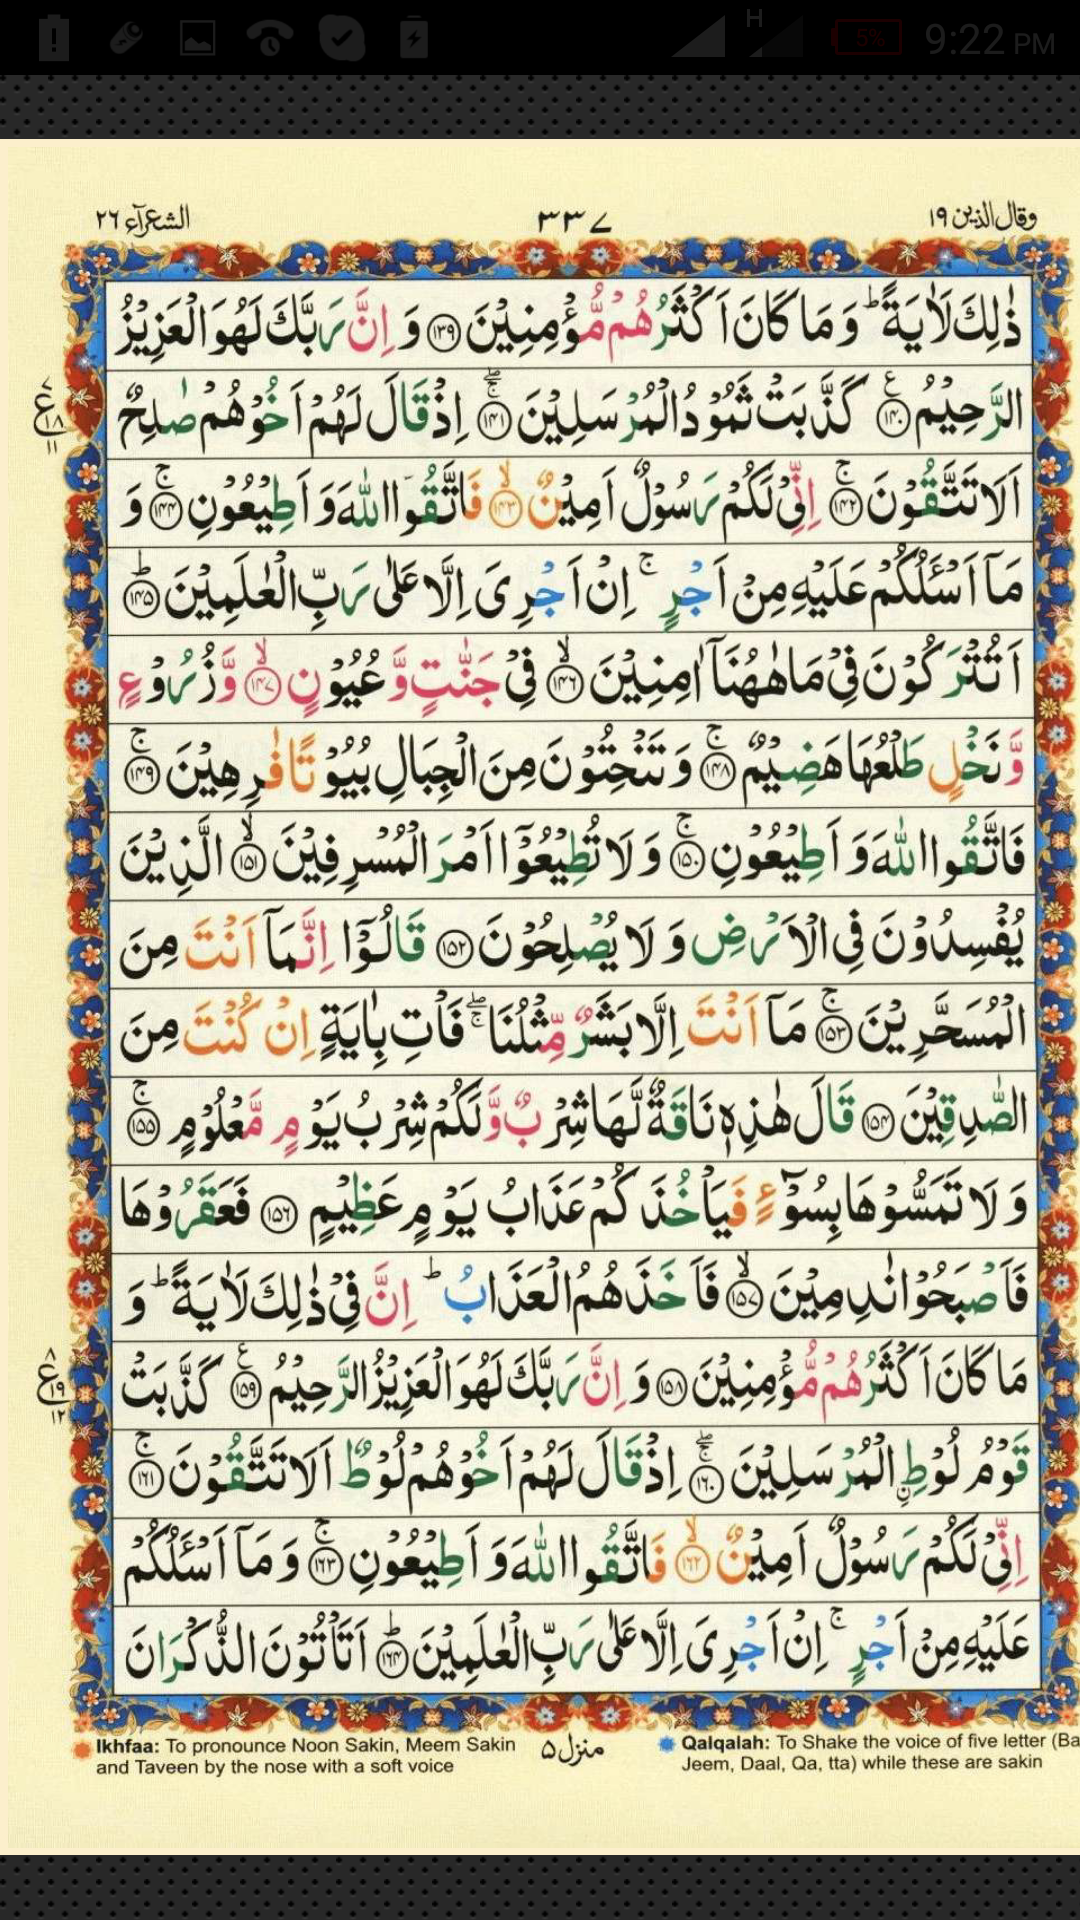 H 5% 9:22 PM
وقال الذين ١٩ ٣٣٧ الشعرآء ٢٦
ذٰلِكَ لَاٰيَةً ؕ وَمَا كَانَ اَكْثَرُهُمْ مُّؤْمِنِيْنَ ﴿۱۳۹﴾ وَ اِنَّ رَبَّكَ لَهُوَ الْعَزِيْزُ
الرَّحِيْمُ ﴿۱۴۰﴾ ع كَذَّبَتْ ثَمُوْدُ الْمُرْسَلِيْنَ ﴿۱۴۱﴾ ۚۖ اِذْ قَالَ لَهُمْ اَخُوْهُمْ صٰلِحٌ
ع ٧ ١٨ ١١
اَلَا تَتَّقُوْنَ ﴿۱۴۲﴾ ۚ اِنِّىْ لَكُمْ رَسُوْلٌ اَمِيْنٌ ﴿۱۴۳﴾ ۙ فَاتَّقُوا اللّٰهَ وَ اَطِيْعُوْنِ ﴿۱۴۴﴾ ۚ وَ
مَاۤ اَسْـَٔلُكُمْ عَلَيْهِ مِنْ اَجْرٍ ۚ اِنْ اَجْرِىَ اِلَّا عَلٰى رَبِّ الْعٰلَمِيْنَ ﴿۱۴۵﴾ ؕ
اَتُتْرَكُوْنَ فِىْ مَا هٰهُنَاۤ اٰمِنِيْنَ ﴿۱۴۶﴾ ۙ فِىْ جَنّٰتٍ وَّ عُيُوْنٍ ﴿۱۴۷﴾ ۙ وَّ زُرُوْعٍ
وَّ نَخْلٍ طَلْعُهَا هَضِيْمٌ ﴿۱۴۸﴾ ۚ وَ تَنْحِتُوْنَ مِنَ الْجِبَالِ بُيُوْتًا فٰرِهِيْنَ ﴿۱۴۹﴾ ۚ
فَاتَّقُوا اللّٰهَ وَ اَطِيْعُوْنِ ﴿۱۵۰﴾ ۚ وَ لَا تُطِيْعُوْۤا اَمْرَ الْمُسْرِفِيْنَ ﴿۱۵۱﴾ ۙ الَّذِيْنَ
يُفْسِدُوْنَ فِى الْاَرْضِ وَ لَا يُصْلِحُوْنَ ﴿۱۵۲﴾ قَالُوْۤا اِنَّمَاۤ اَنْتَ مِنَ
الْمُسَحَّرِيْنَ ﴿۱۵۳﴾ ۚ مَاۤ اَنْتَ اِلَّا بَشَرٌ مِّثْلُنَا ۚۖ فَاْتِ بِاٰيَةٍ اِنْ كُنْتَ مِنَ
الصّٰدِقِيْنَ ﴿۱۵۴﴾ قَالَ هٰذِهٖ نَاقَةٌ لَّهَا شِرْبٌ وَّ لَكُمْ شِرْبُ يَوْمٍ مَّعْلُوْمٍ ﴿۱۵۵﴾ ۚ
وَ لَا تَمَسُّوْهَا بِسُوْٓءٍ فَيَاْخُذَكُمْ عَذَابُ يَوْمٍ عَظِيْمٍ ﴿۱۵۶﴾ فَعَقَرُوْهَا
فَاَصْبَحُوْا نٰدِمِيْنَ ﴿۱۵۷﴾ ۙ فَاَخَذَهُمُ الْعَذَابُ ؕ اِنَّ فِىْ ذٰلِكَ لَاٰيَةً ؕ وَ
مَا كَانَ اَكْثَرُهُمْ مُّؤْمِنِيْنَ ﴿۱۵۸﴾ وَ اِنَّ رَبَّكَ لَهُوَ الْعَزِيْزُ الرَّحِيْمُ ﴿۱۵۹﴾ ع كَذَّبَتْ
ع ٨ ١٩ ١٢
قَوْمُ لُوْطِ ۨ الْمُرْسَلِيْنَ ﴿۱۶۰﴾ ۚۖ اِذْ قَالَ لَهُمْ اَخُوْهُمْ لُوْطٌ اَلَا تَتَّقُوْنَ ﴿۱۶۱﴾ ۚ
اِنِّىْ لَكُمْ رَسُوْلٌ اَمِيْنٌ ﴿۱۶۲﴾ ۙ فَاتَّقُوا اللّٰهَ وَ اَطِيْعُوْنِ ﴿۱۶۳﴾ ۚ وَ مَاۤ اَسْـَٔلُكُمْ
عَلَيْهِ مِنْ اَجْرٍ ۚ اِنْ اَجْرِىَ اِلَّا عَلٰى رَبِّ الْعٰلَمِيْنَ ﴿۱۶۴﴾ ؕ اَتَاْتُوْنَ الذُّكْرَانَ
Ikhfaa: To pronounce Noon Sakin, Meem Sakin
and Taveen by the nose with a soft voice
منزل ۵
Qalqalah: To Shake the voice of five letter (Ba
Jeem, Daal, Qa, tta) while these are sakin